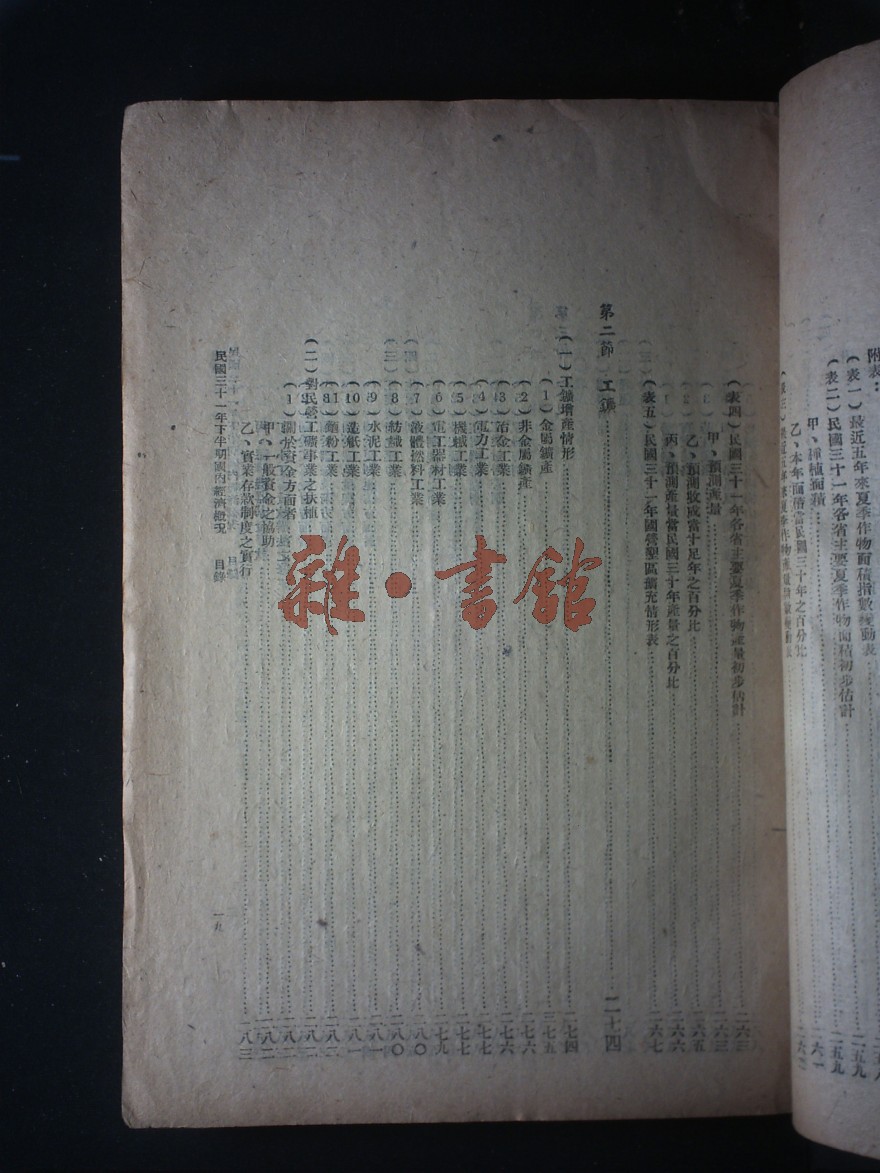 附表：
（表一）最近五年來夏季作物面積指數變動表
（表二）民國三十一年各省主要夏季作物面積初步估計
甲、種植面積
乙、本年面積當民國三十年之百分比
（表四）民國三十一年各省主要夏季作物產量初步估計 二六三
甲、預測產量 二六三
乙、預測收成當十足年之百分比 二六五
丙、預測產量當民國三十年產量之百分比 二六六
（表五）民國三十一年國營墾區擴充情形表 二六七
第二節 工鑛
（一）工鑛增產情形 二七四
（1）金屬鑛產 二七五
（2）非金屬鑛產 二七六
（3）冶金工業 二七六
（4）電力工業 二七七
（5）機械工業 二七七
（6）電工器材工業 二七九
（7）液體燃料工業 二八〇
（8）紡織工業 二八〇
（9）水泥工業 二八一
（10）造紙工業 二八一
（11）麵粉工業 二八二
（二）對民營工礦事業之扶植 二八二
（1）關於資金方面者 二八二
甲、一般資金之協助 二八二
乙、實業存款制度之實行 二八三
民國三十一年下半期國內經濟概況 目錄
一九
雜·書館